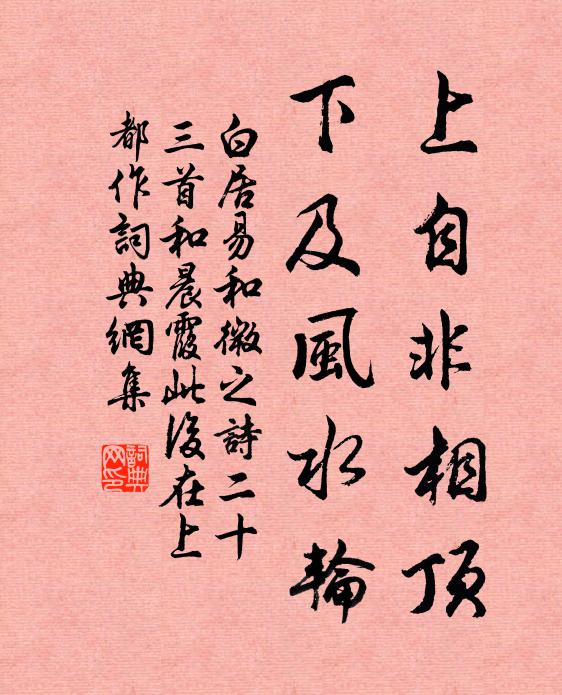 上自非相頂
下及風水輪
白居易和微之詩二十
三首和晨霞此後在上
都作詞典網集
詞典網印